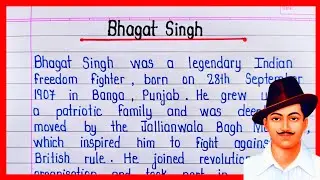 Bhagat Singh
Bhagat Singh was a legendary Indian
freedom fighter, born on 28th
1907 in Banga, Punjab. He grew
a patriotic family and was
moved by the Jallianwala Bagh
which inspired him to fight
British rule. He joined
and took part in